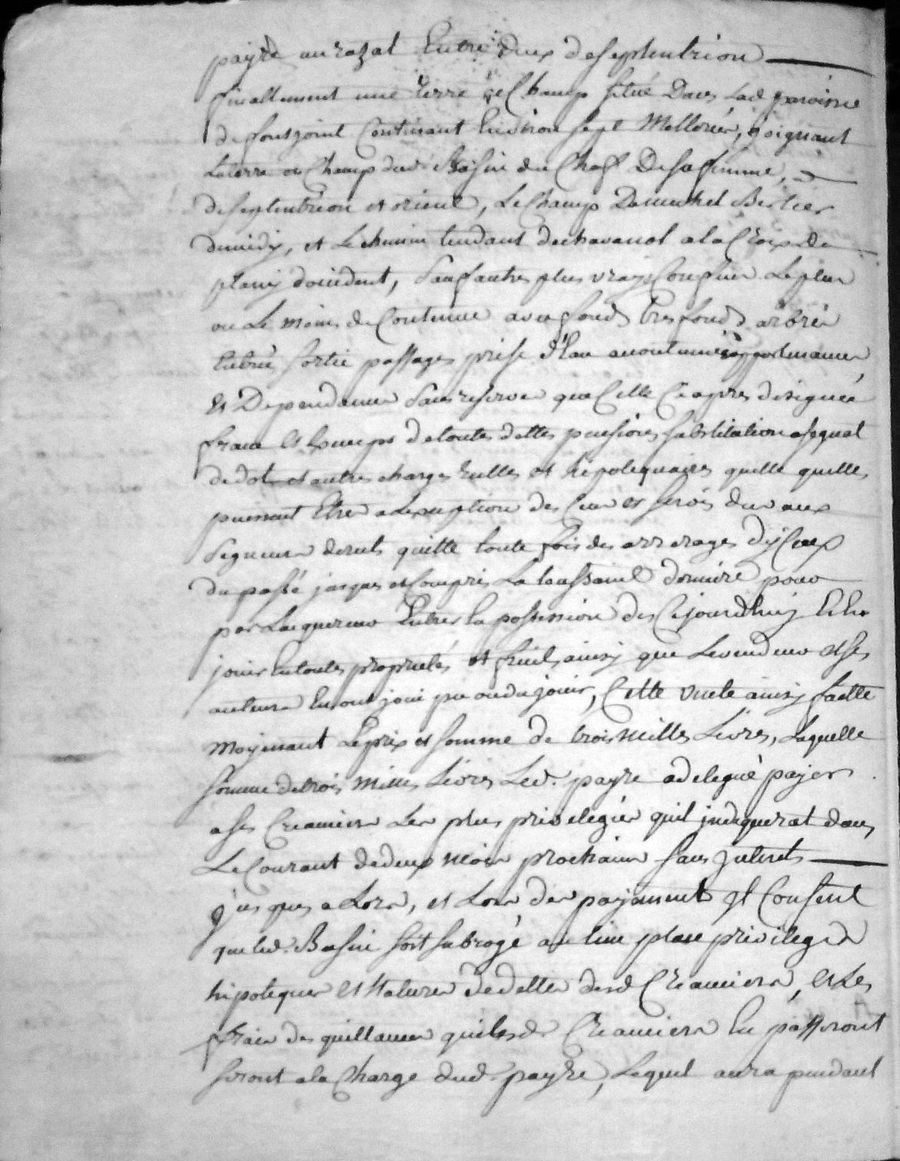 payre au razat Entre deux de septentrion
finallement une terre et Champ situé Dans Lad paroisse
de fontjoint Contenant Environ sept Mellorées, joignant
Laterre et Champ dud Basin du Chef De safemme,
deseptentrion et orient, Le Champ De michel Bertier
dumidy, et Lechemin tendant dechavanol ala Croix de
plany doccident, Sauf autres plus vrays Confins Leplus
ou Le moins de Contenue avec fonds tresfonds arbres
Entrée sortie passages prise d'Eau acoutumés appartenances
Et Dependances sans reserve que Celle Cy apres designée
franc Et Exempt detoutes dettes pensions substitution
dedot et autres charges reelles et hipotequaires quelle quelles
puissent Etre a Lexeption des Cens et servis dus aux
Seigneurs directs quitte toute fois des arrerages d'yCeux
du passé jusques et Compris La toussaint derniere pour
par Lacquereur Entrer En possession des Cejourdhuy Et En
jouir Entoutes proprietés et fruits ainsy que Levendeur et ses
auteurs En ont joui pu ou du jouir, Cette vente ainsy faitte
Moyenant Leprix et somme de trois milles Livres, Laquelle
somme detrois milles Livres Led. payre adelegué payer
a ses Creanciers Les plus privilegiés quil indiquerat dans
Le Courant dedeux mois prochains sans Interets
jusques a Lors, et Lors des payements Il Consent
queled. Basin soit subrogé au lieu place privilege
hipoteques Et Nature de dettes desd Creanciers, et Les
frais des quittances quelesd Creanciers En passeront
seront ala Charge dud payre, Lequel aura pendant